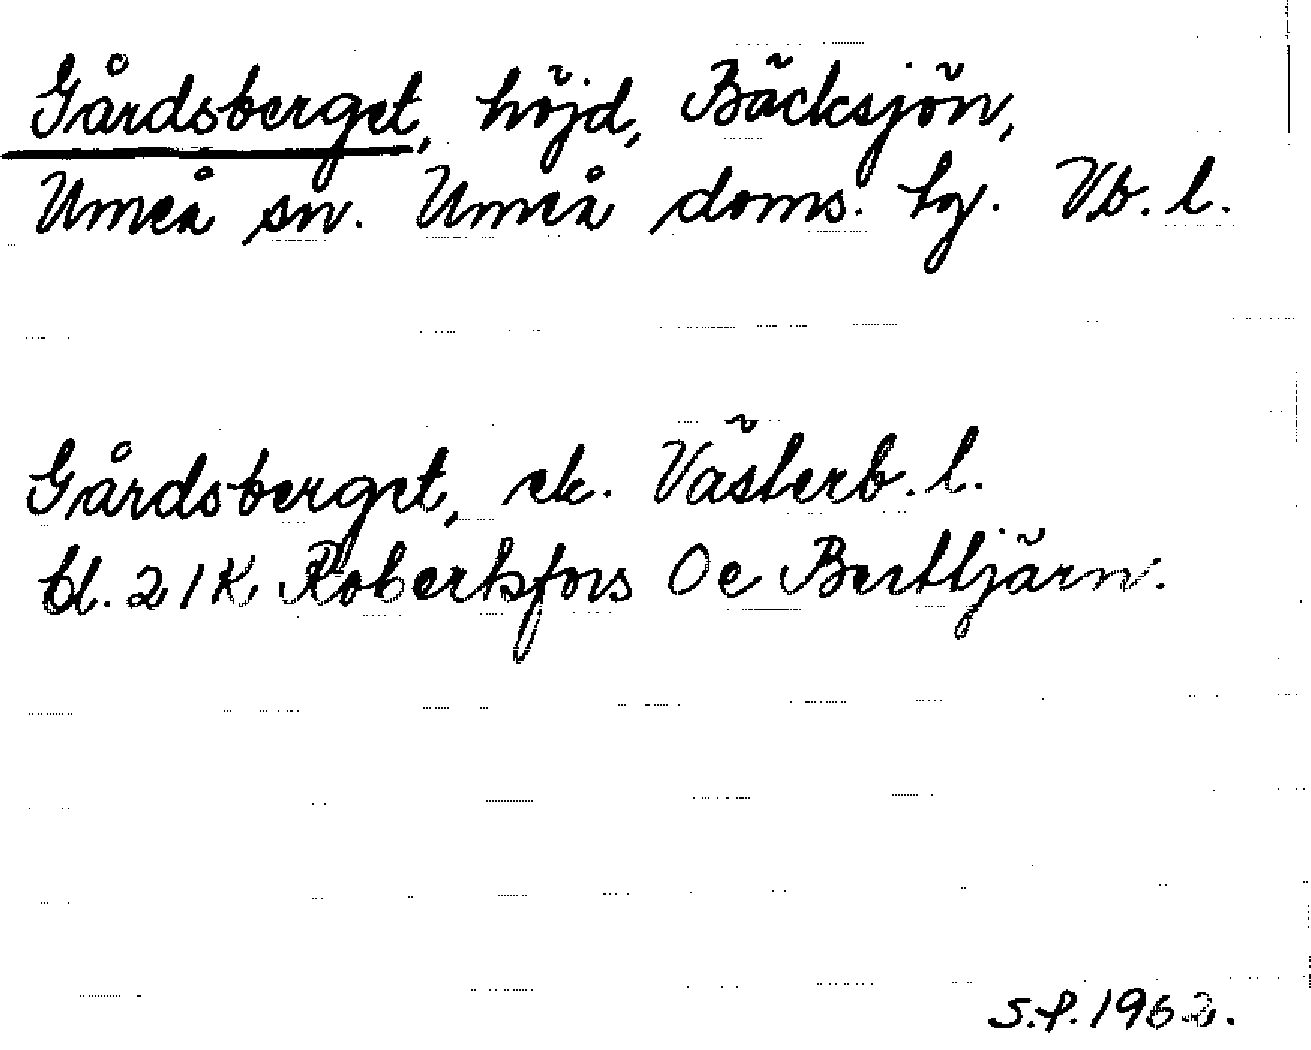 Gårdsberget, höjd, Bäcksjön,
Umeå sn. Umeå doms. tg. Vb. l.
Gårdsberget, ek. Västerb. l.
bl. 21K Robertsfors Oe Berttjärn.
S.P. 1962.